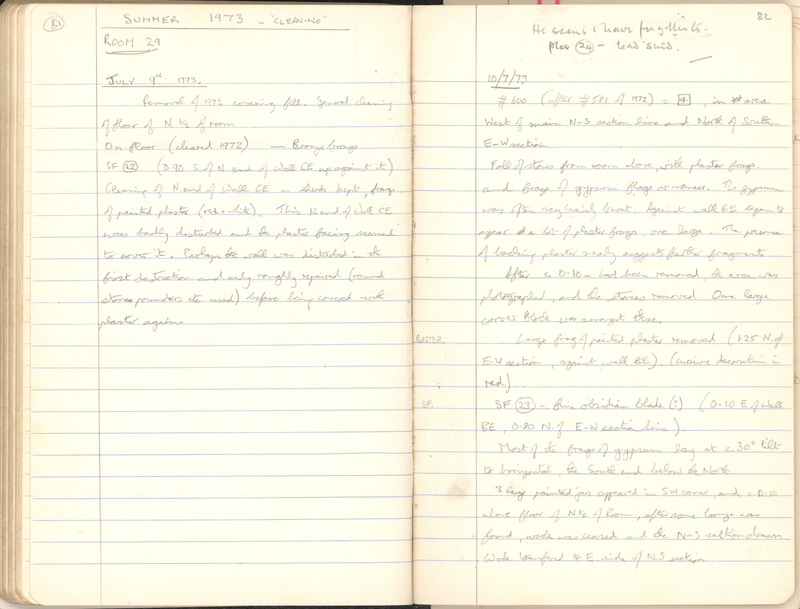 81
SUMMER 1973 - "CLEANING"
ROOM 29
JULY 9th 1973.
Removal of 1972 covering fill. General cleaning
of floor of N. 1/2 of room
On floor (cleared 1972) — Bronze frags
SF (22) (0.90 S. of N end of Wall CE up against it)
Cleaning of N. end of Wall CE – sherds kept, frags
of painted plaster (red + white). This N. end of Wall CE
was badly disturbed and the plaster facing seemed
to cover it. Perhaps the wall was disturbed in the
first destruction and only roughly repaired (round
stones, pounders etc used) before being covered with
plaster again.
82
He seems I have forgotten
plot (24) – lead
10/7/73
#600 (after #581 of 1972) = 4, in the area
West of main N-S section line and North of Southern
E-W section.
Fall of stones from room above, with plaster frags.
and frags of gypsum flags or veneer. The gypsum
was often very heavily burnt. Against wall BE began to
appear a lot of plaster frags, one large. The presence
of backing plaster nearby suggests further fragments
After c. 0.10m had been removed, the area was
photographed, and the stones removed. One large
corner block was amongst these.
PLASTER. Large frag of painted plaster removed (1.25 N. of
E-W section, against wall BE). (cursive decoration in
red)
SF. SF (23) – fine obsidian blade (:) (0.10 E of Wall
BE, 0.80 N. of E-W section line)
Most of the frags of gypsum lay at c. 30° tilt
to horizontal, the South end below the North.
3 large painted jars appeared in SW corner, and c. 0.10
above floor of N 1/2 of Room, after some bronze was
found, work was ceased and the N-S section drawn.
Work transferred to E. side of N-S section.